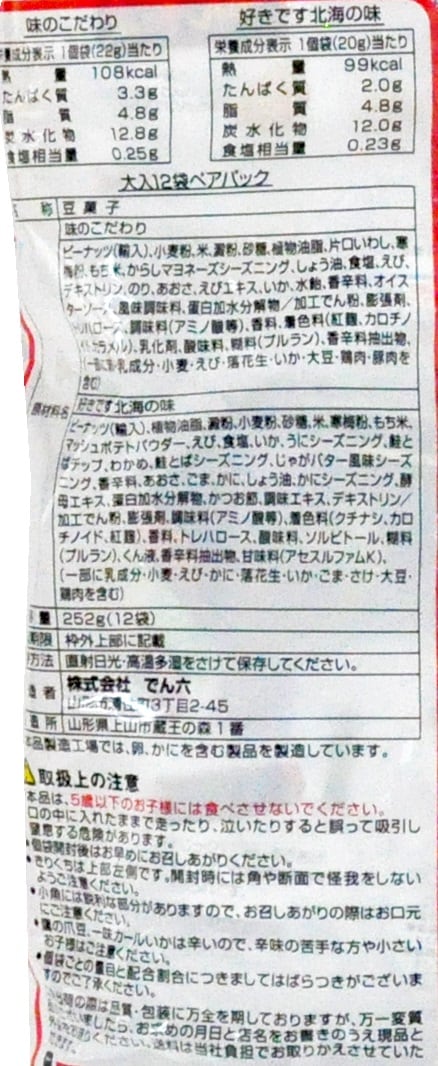 味のこだわり
栄養成分表示 1個袋(22g)当たり
熱量 108kcal
たんぱく質 3.3g
脂質 4.8g
炭水化物 12.8g
食塩相当量 0.25g
好きです北海の味
栄養成分表示 1個袋(20g)当たり
熱量 99kcal
たんぱく質 2.0g
脂質 4.8g
炭水化物 12.0g
食塩相当量 0.23g
大入12袋ペアパック
称 豆菓子
味のこだわり
ピーナッツ(輸入)、小麦粉、米、澱粉、砂糖、植物油脂、片口いわし、寒
梅粉、もち米、からしマヨネーズシーズニング、しょう油、食塩、えび、
デキストリン、のり、あおさ、えびエキス、いか、水飴、香辛料、オイス
ターソース、風味調味料、蛋白加水分解物/加工でん粉、膨張剤、
調味料(アミノ酸等)、香料、着色料(紅麹、カロチノ
カラメル)、乳化剤、酸味料、糊料(プルラン)、香辛料抽出物、
(一部に乳成分・小麦・えび・落花生・いか・大豆・鶏肉・豚肉を
含む)
原材料名
好きです北海の味
ピーナッツ(輸入)、植物油脂、澱粉、小麦粉、砂糖、米、寒梅粉、もち米、
マッシュポテトパウダー、えび、食塩、いか、うにシーズニング、鮭と
ばチップ、わかめ、鮭とばシーズニング、じゃがバター風味シーズ
ニング、香辛料、あおさ、ごま、かに、しょう油、かにシーズニング、酵
母エキス、蛋白加水分解物、かつお節、調味エキス、デキストリン/
加工でん粉、膨張剤、調味料(アミノ酸等)、着色料(クチナシ、カロ
チノイド、紅麹)、香料、トレハロース、酸味料、ソルビトール、糊料
(プルラン)、くん液、香辛料抽出物、甘味料(アセスルファムK)、
(一部に乳成分・小麦・えび・かに・落花生・いか・ごま・さけ・大豆・
鶏肉を含む)
量 252g(12袋)
期限 枠外上部に記載
方法 直射日光・高温多湿をさけて保存してください。
造者 株式会社 でん六
山形市清住町3丁目2-45
造所 山形県上山市蔵王の森1番
本品製造工場では、卵、かにを含む製品を製造しています。
取扱上の注意
本品は、5歳以下のお子様には食べさせないでください。
口の中に入れたままで走ったり、泣いたりすると誤って吸引し
窒息する危険があります。
・個袋開封後はお早めにお召しあがりください。
・きりくちは上部左側です。開封時には角や断面で怪我をしない
ようご注意ください。
・小魚には鋭利な部分がありますので、お召しあがりの際はお口元
にご注意ください。
・鷹の爪豆、一味カールいかは辛いので、辛味の苦手な方や小さい
お子様はご注意ください。
・個袋ごとの重目と配合割合につきましてはばらつきがございま
すのでご了承ください。
の際は品質・包装に万全を期しておりますが、万一変質
ましたら、お求めの月日と店名をお書きのうえ現品と
ください。送料は当社負担でお取りかえさせていた
だきます。